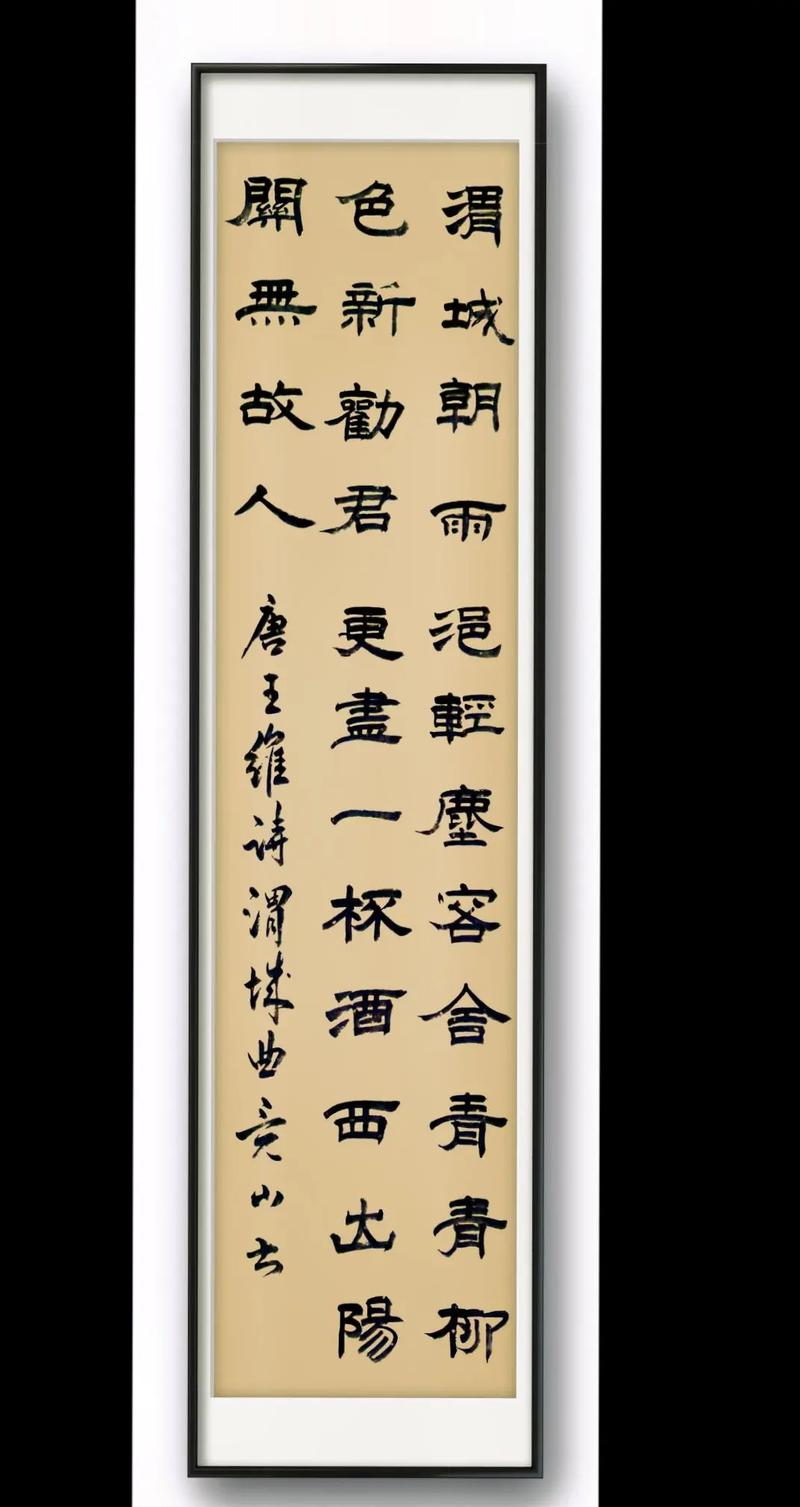 渭城朝雨浥輕塵客舍青青柳
色新勸君更盡一杯酒西出陽
關無故人 唐王維詩渭城曲山书